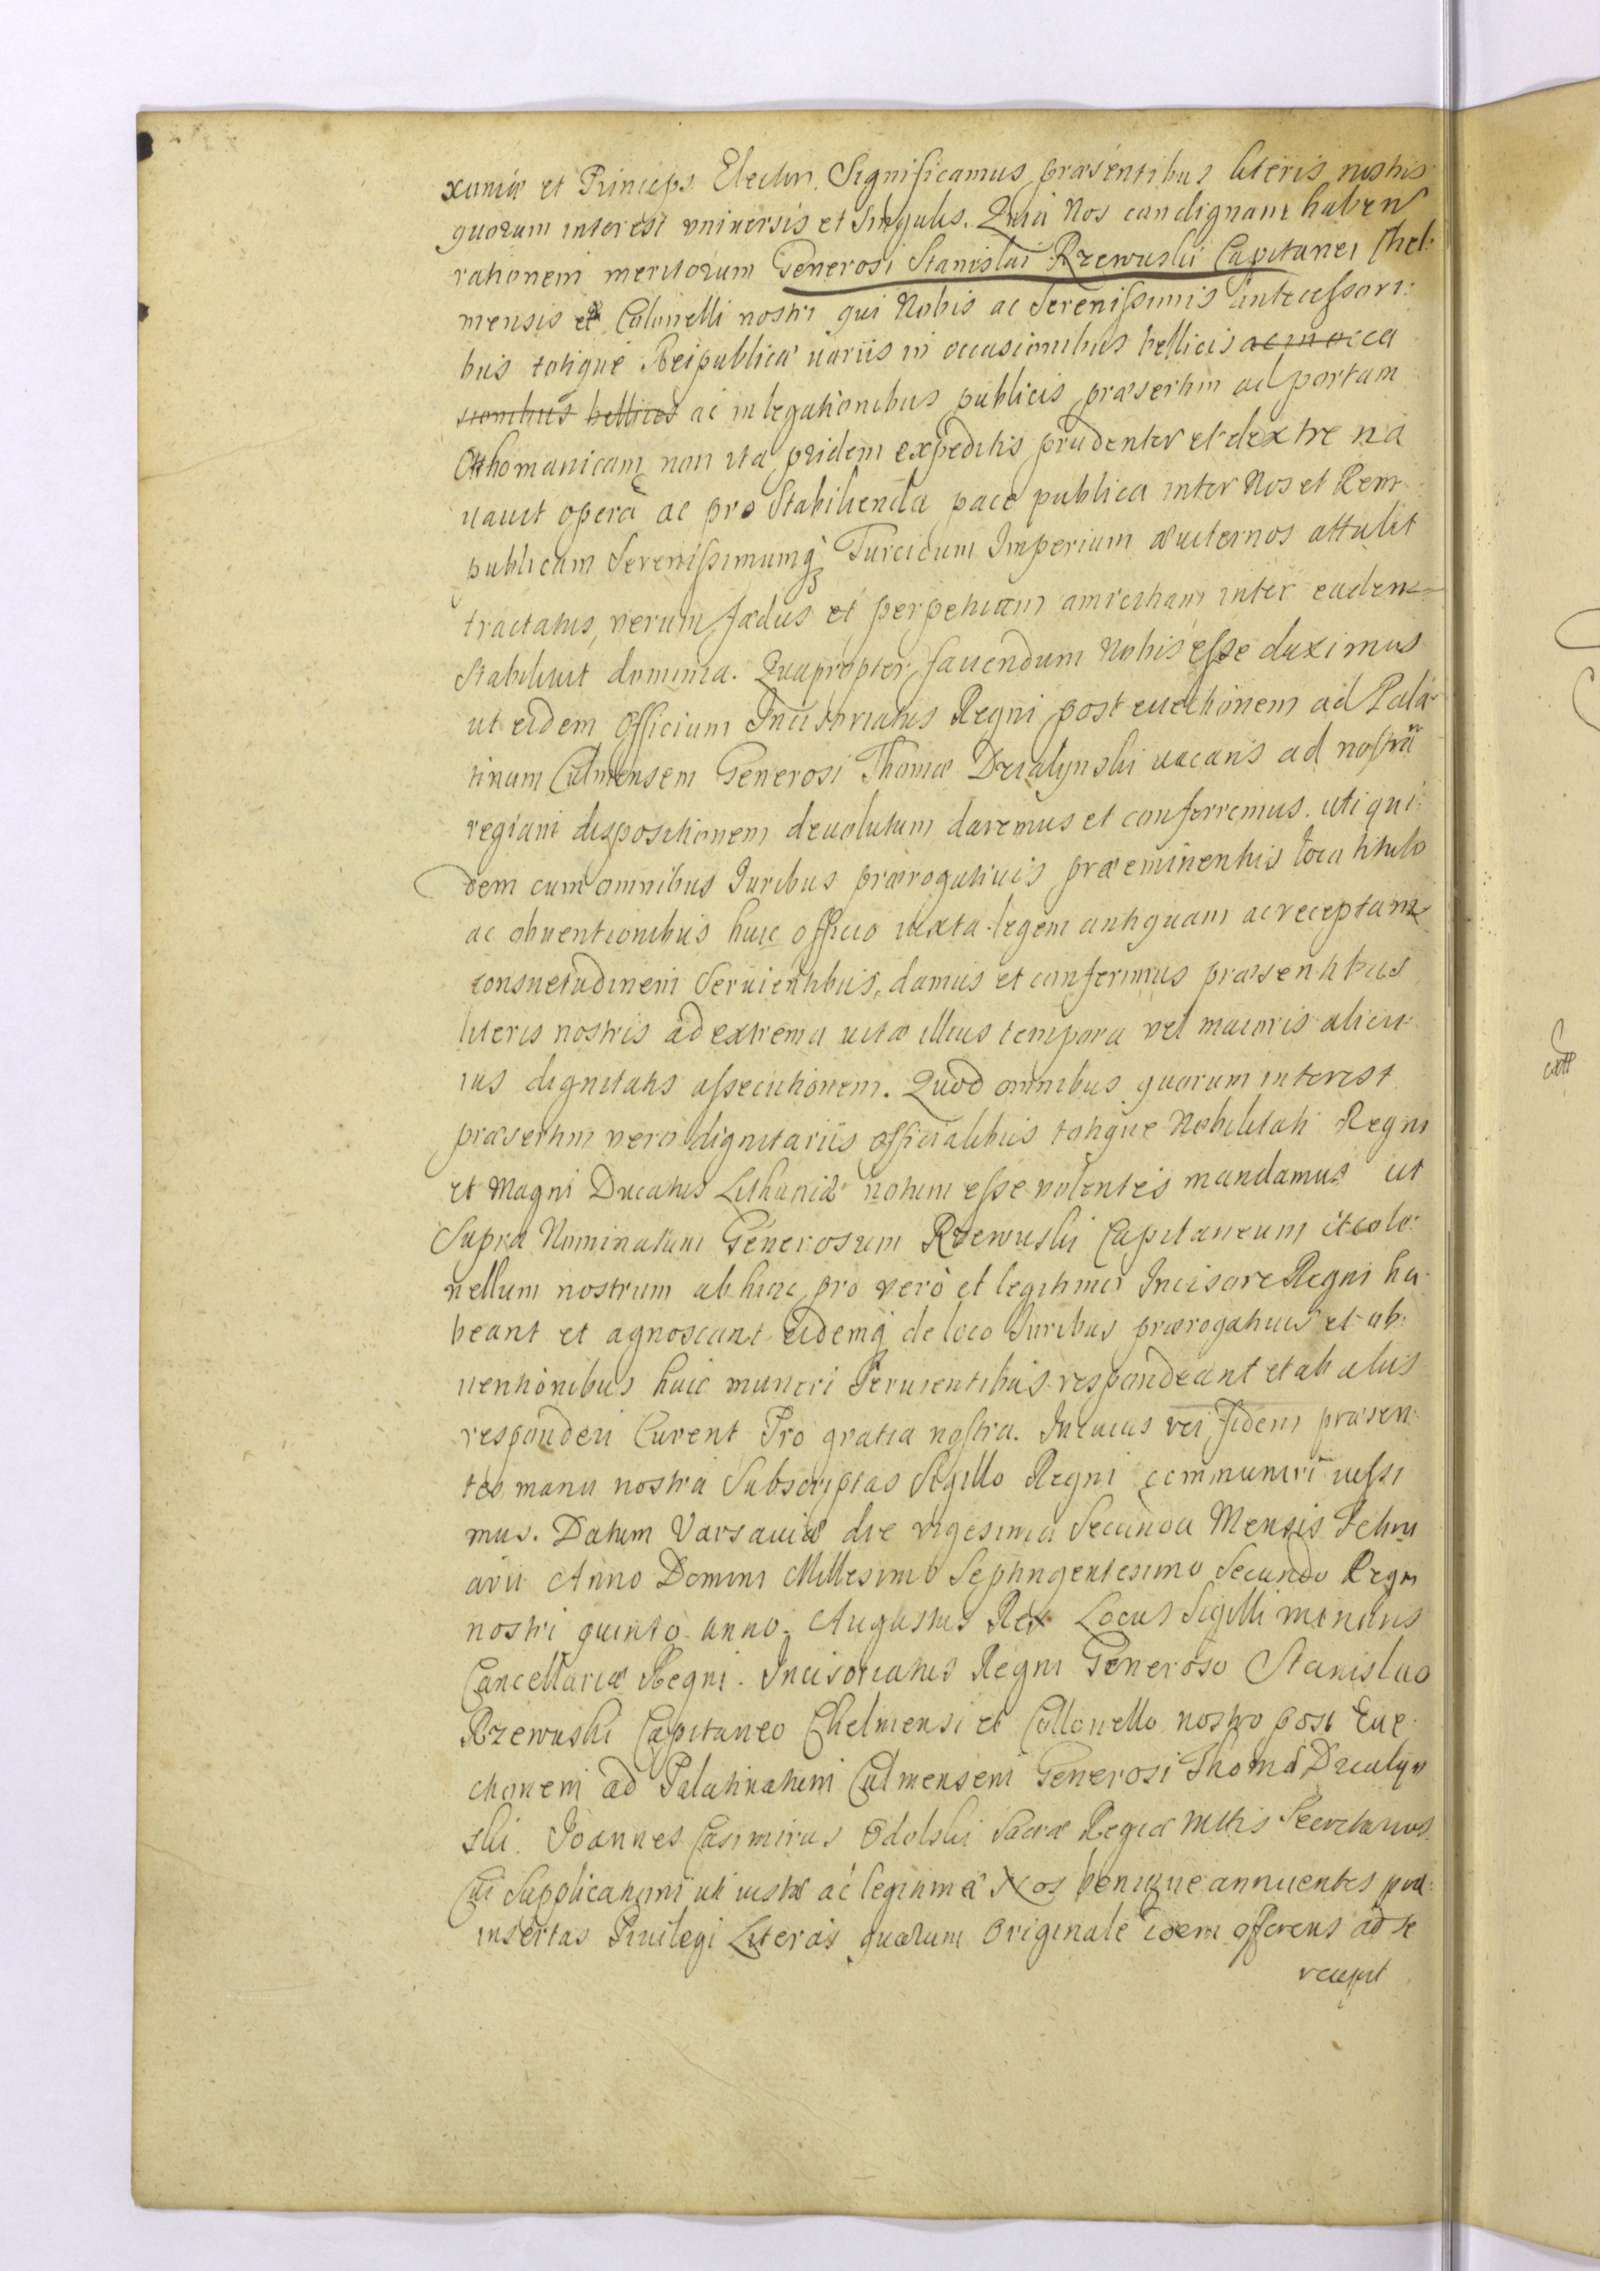 xoniæ et Princeps Elector. Significamus præsentibus literis nostris
quorum interest vniversis et Singulis. Quia Nos condignam haben
rationem meritorum Generosi Stanislai Rzewuski Capitanei Chel:
mensis et Colonelli nostri qui Nobis ac Serenissimis Antecessori:
bus totique Reipublicæ variis in occasionibus bellicis ac in occa
sionibus bellicis ac in legationibus publicis præsertim ad portam
Otthomanicam non ita pridem expeditis prudenter et dextre na
vavit operà ac pro Stabilienda pace publica inter Nos et Rem
publicam Serenissimumq Turcicum Imperium æviternos attulit
tractatus, verum fædus et perpetuam amicitiam inter eadem
Stabilivit dominia. Quapropter favendum Nobis esse duximus
ut eidem Officium Incisoriatus Regni post evectionem ad Pala
tinum Culmensem Generosi Thomæ Dzialynski vacans ad nostrã
regiam dispositionem devolutum daremus et conferremus. uti qui:
dem cum omnibus Juribus prærogativis præeminentiis loco titulo
ac obventionibus huic officio iuxta legem antiquam ac receptam
consuetudinem Servientibus, damus et conferimus præsentibus
literis nostris ad extrema vitæ illius tempora vel maioris alicu
ius dignitatis assecutionem. Quod omnibus quorum interest
præsertim vero dignitariis officialibus totique Nobilitati Regni
et Magni Ducatus Lithuaniæ notum esse volentes mandamus ut
Supra Nominatum Generosum Rzewuski Capitaneum et colo:
nellum nostrum ab hinc pro verò et legitimo Incisore Regni ha
beant et agnoscant eidemq de loco Juribus prærogativis et ob:
ventionibus huic muneri Servientibus respondeant et ab aliis
responderi Curent Pro gratia nostra. In cuius rei fidem præsen
tes manu nostra Subscriptas Sigillo Regni communiri iussi
mus. Datum Varsaviæ die vigesima Secunda Mensis Febru
arii Anno Domini Millesimo Septingentesimo Secundo Regni
nostri quinto anno. Augustus Rex Locus Sigilli minoris
Cancellariæ Regni. Incisoriatus Regni Generoso Stanislao
Rzewuski Capitaneo Chelmensi et Collonello nostro post Eve
ctionem ad Palatinatum Culmensem Generosi Thomæ Dzialyn
ski. Joannes Casimirus Odolski Sacræ Regiæ Mttis Secretarius
Cui Supplicationi uti iustæ ac legitimæ Nos benigne annuentes præ
insertas Privilegi Literas quarum Originale idem offerens ad se
recepit